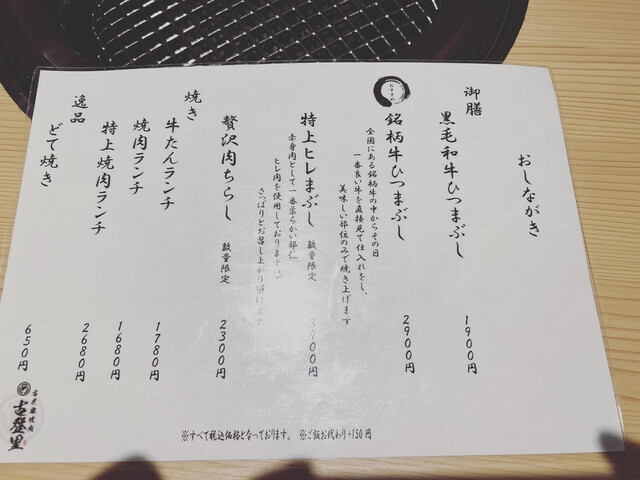 おしながき
御膳
黒毛和牛ひつまぶし
1900円
おすすめ
銘柄牛ひつまぶし
2900円
全国にある銘柄牛の中からその日
一番良い牛を直接見て仕入れをし、
美味しい部位のみで焼き上げます
特上ヒレまぶし 数量限定
3900円
赤身肉として一番柔らかい部位
ヒレ肉を使用しております
さっぱりとお召し上がり頂けます
贅沢肉ちらし 数量限定
2300円
焼き
牛たんランチ
1780円
焼肉ランチ
1680円
特上焼肉ランチ
2680円
逸品
どて焼き
650円
※すべて税込価格となっております。 ※ご飯お代わり+150円
古登里